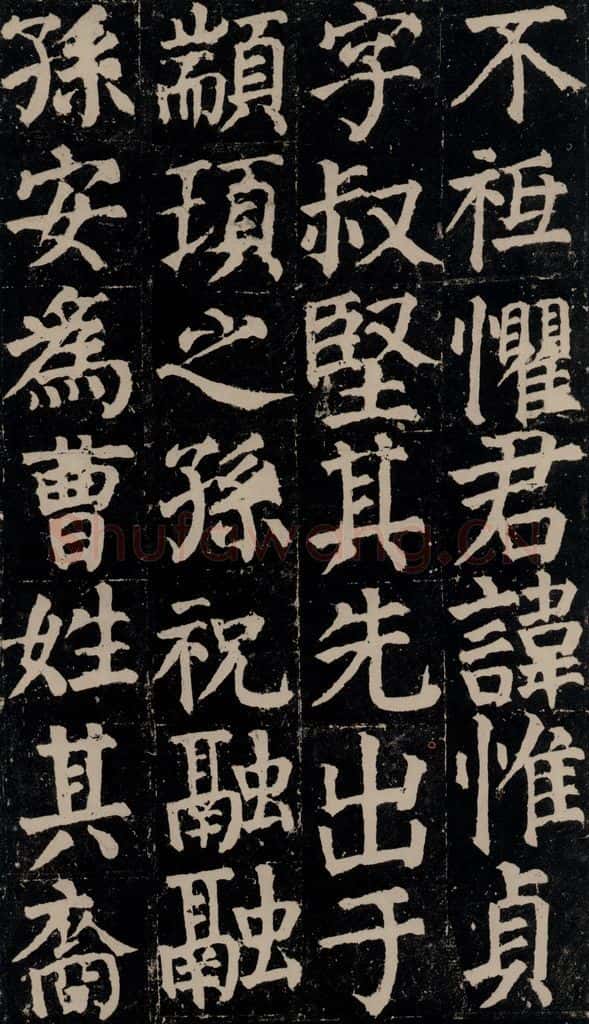 不祗懼君諱惟貞
字叔堅其先出于
顓頊之孫祝融融
孫安為曹姓其裔
Shufawang.CN